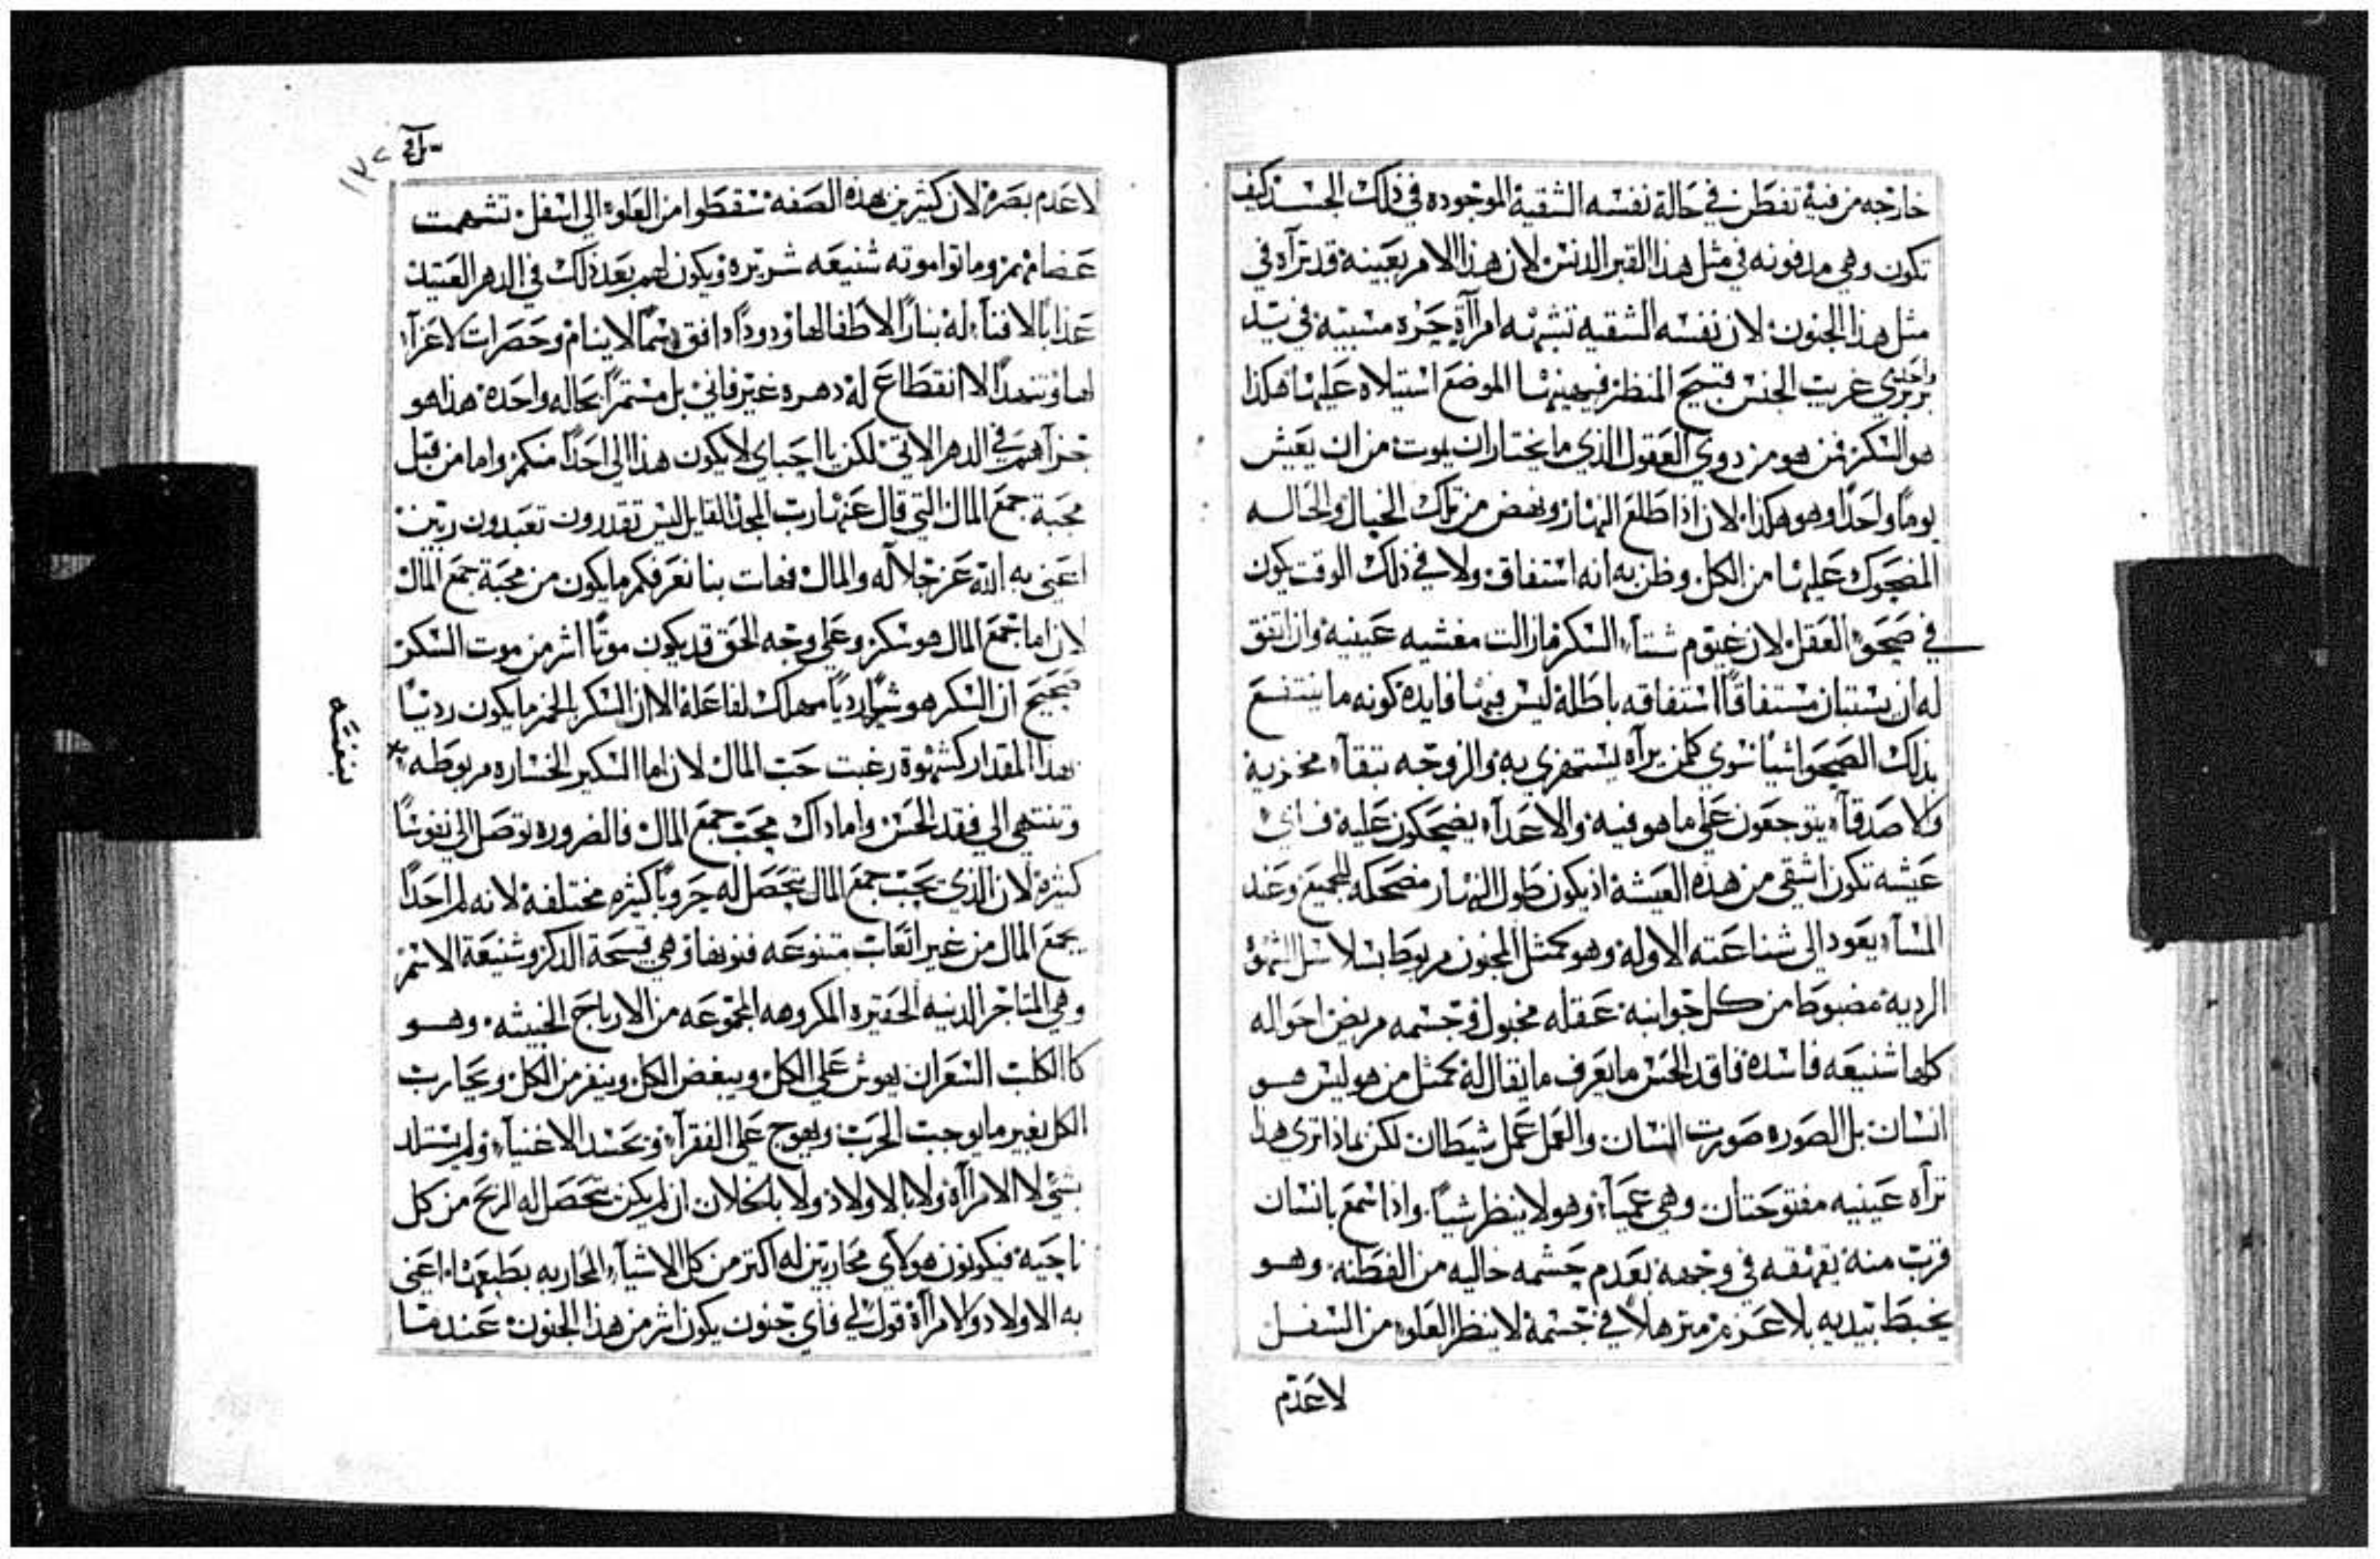 خارجه من فيه تفطن في حالة نفسه الشقية الموجوده في ذلك الجسد كيف
تكون وهي مدفونه في مثل هذا القبر الدنس لان هذا الامر بعينه قد تراه في
مثل هذا الجنون لان نفسه الشقيه تشبه امراآة حره مسبيه في يد
واحد
بربري غريب الجنس قبيح المنظر فيهينها الموضع استيلاه عليها هكذا
هو السكر فمن هو من دوي العقول الذي ما يختار ان يموت من ان يعيش
يوماً واحداً وهو هكذا لان اذا طلع النهار ونهض من تلك الخيال والحاله
المضحوك عليها من الكل وظن به انه استفاق ولا في ذلك الوقت يكون
في صحو العقل لان غيوم شتاء السكر مازالت مغشيه عينيه وان اتفق
له ان يستبان مستفاقاً استفاقه باطلة ليس فيها فايده كونه ما ينتفع
بذلك الصحو اشيا سوي كلمن يراه يستهزي به والزوجه تبقاء مخزية
والاصدقاء يتوجعون على ما هو فيه والاعداء يضحكون عليه فاي
عيشه تكون اشقي من هذه العيشه اذ يكون طول النهار مضحكه للجميع وعند
المساء يعود الى شناعته الاوله وهو كمثل المجنون مربوط بسلاسل الشهوة
الرديه مضبوط من كل جوانبه عقله مخبول وجسمه مريض احواله
كلها شنيعه فاسده فاقد الحس ما يعرف ما يقال له كمثل من هو ليس هو
انسان بل الصوره صورت انسان والعمل عمل شيطان لكن بماذا تري هذا
تراه عينيه مفتوحتان وهي عمياء وهو لا ينظر شياً واذا سمع بانسان
قرب منه يقهقه في وجهه بعدم حشمه خاليه من الفطنه وهو
يخبط بيديه بلا عزم مترهلاً في جسمه لا ينظر العلو من السفل
لا عدم
١٢٧
لا عدم بصره لان كثيرين هذه الصفه سقطوا من العلو الى اسفل تشهمت
عضامهم وماتوا موته شنيعه شريره ويكون لهم بعد ذلك في الدهر العتيد
عذاباً لا فناء له بناراً لا طفا لها ودوداً دافق سماً لا ينام وحصرات لا عزاء
لها وتنهداً لا انقطاع له دهره غير فاني بل مستمراً بحاله واحده هذا هو
جزآهم في الدهر الاتي لكن يا احباي لا يكون هذا الى احداً منكم واما من قبل
محبة جمع المال التي قال عنها رب المجد القايل ليس تقدرون تعبدون ربين
اعني به الله عز جلاله والمال فهات بنا نعرفكم ما يكون من محبة جمع المال
لان اما جمع المال هو سكر وعلى وجه الحق قد يكون موتاً اشر من موت السكر
صحيح ان السكر هو شراً ردياً مهلك لفاعله الا ان السكر بالخمر ما يكون ردياً
بهذا المقدار كشهوة رغبت حب المال لان اما السكير الخساره مربوطه
بنفسه
وتنتهي الى فقد الحس واما داك محب جمع المال فالضروره توصل الى نفوساً
كثيرة لان الذي يحب جمع المال تحصل له حروباً كثيره مختلفة لانه لم احداً
يجمع المال من غير اتعاب متنوعه فنونها وهي قبيحة الدكر وشنيعة الاسم
وهي المتاجر الدنيه الحقيره المكروهه المجموعه من الارباح الخبيثه وهو
كالكلب السعران يهوش على الكل ويبغض الكل وينفر من الكل ويحارب
الكل بغير ما يوجب الحرب ويهوج على الفقراء ويحسد الاغنياء ولم يستلد
بشي لا الامراآة ولا بالاولاد ولا بالخلان ان لم يكن تحصل له الربح من كل
ناحية فيكونون هولاي محاربين له اكتر من كل الاشياء المحاربه بطبعها اعني
به الاولاد والامراآة قول لي فاي جنون يكون اشر من هذا الجنون عندما